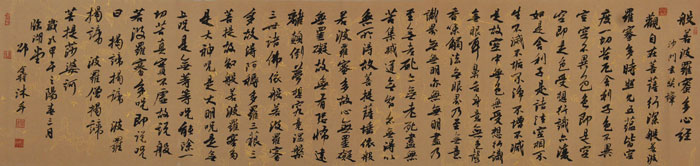 般若波羅蜜多心經
沙門玄奘譯
觀自在菩薩行深般若波
羅蜜多時照見五蘊皆空
度一切苦厄舍利子色不異
空空不異色色即是空
空即是色受想行識亦復
如是舍利子是諸法空相不
生不滅不垢不淨不增不減
是故空中無色無受想行識
無眼耳鼻舌身意無色聲
香味觸法無眼界乃至無意
識界無無明亦無無明盡乃
至無老死亦無老死盡無
苦集滅道無智亦無得以
無所得故菩提薩埵依般
若波羅蜜多故心無罣礙
無罣礙故無有恐怖遠
離顛倒夢想究竟涅槃
三世諸佛依般若波羅蜜多
故得阿耨多羅三藐三
菩提故知般若波羅蜜多
是大神咒是大明咒是無
上咒是無等等咒能除一
切苦真實不虛故說般
若波羅蜜多咒即說咒
曰揭諦揭諦 波羅
揭諦 波羅僧揭諦
菩提薩婆訶
歲次甲午之陽春三月
沐手